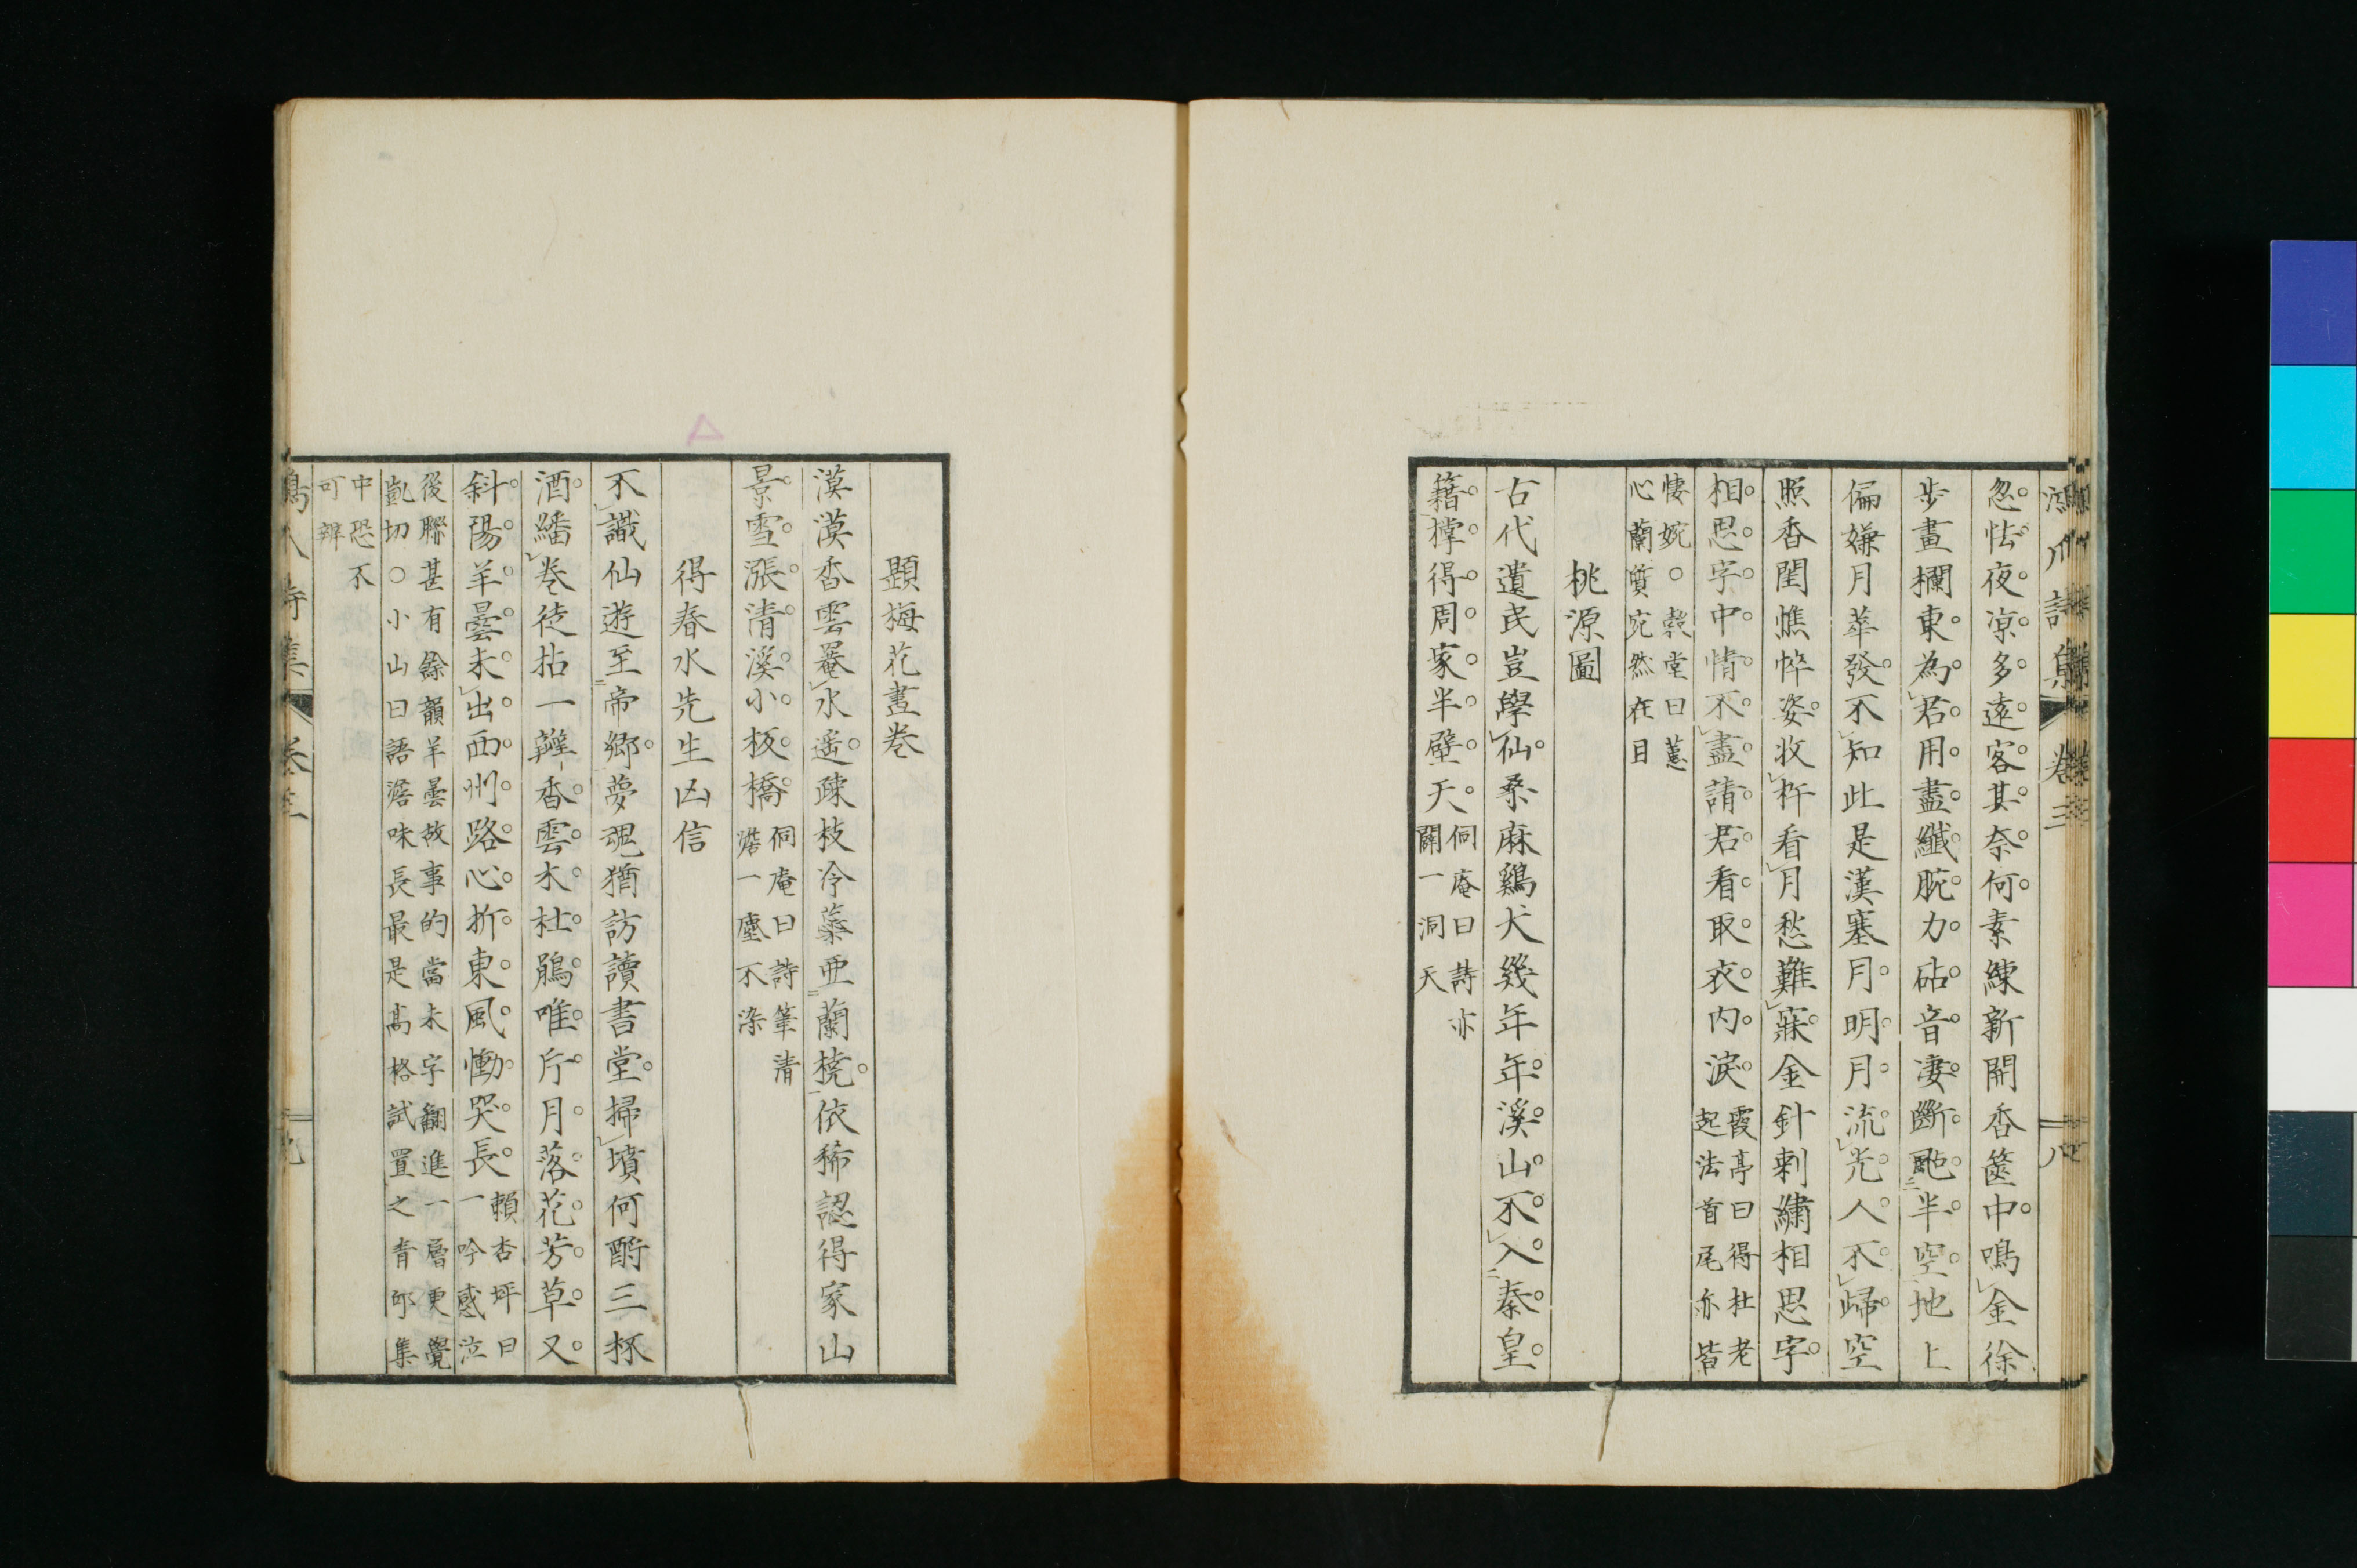 忽怯夜凉多遠客其奈何素練新開香篋中鳴金徐
步畫欄東為君用盡纖腕力砧音凄斷颭半空地上
偏嫌月華發不知此是漢塞月明月流光人不歸空
照香閨憔悴姿收杵看月愁難寐金針刺繡相思字
相思字中情不盡請君看取衣内淚
霞亭曰得杜老
起法首尾亦皆
悽婉○穀堂曰蕙
心蘭質宛然在目
桃源圖
古代遺民豈學仙桑麻鷄犬幾年年溪山不入秦皇
籍撑得周家半壁天
侗庵曰詩亦
闢一洞天
卷三
八
題梅花畫卷
漠漠香雲罨水遥疎枝冷蘂亜蘭橈依稀認得家山
景雪漲清溪小板橋
侗庵曰詩筆清
澹一塵不染
得春水先生凶信
不識仙遊至帝郷夢魂猶訪讀書堂掃墳何酹三杯
酒繙巻徒拈一瓣香雲木杜鵑唯片月落花芳草又
斜陽羊曇未出西州路心折東風慟哭長
頼杏坪曰
一吟感泣
後聯甚有餘韻羊曇故事的當未字翻進一層更覺
凱切○小山曰語澹味長最是髙格試置之青邱集
中恐不
可辨
詩集
卷三
九